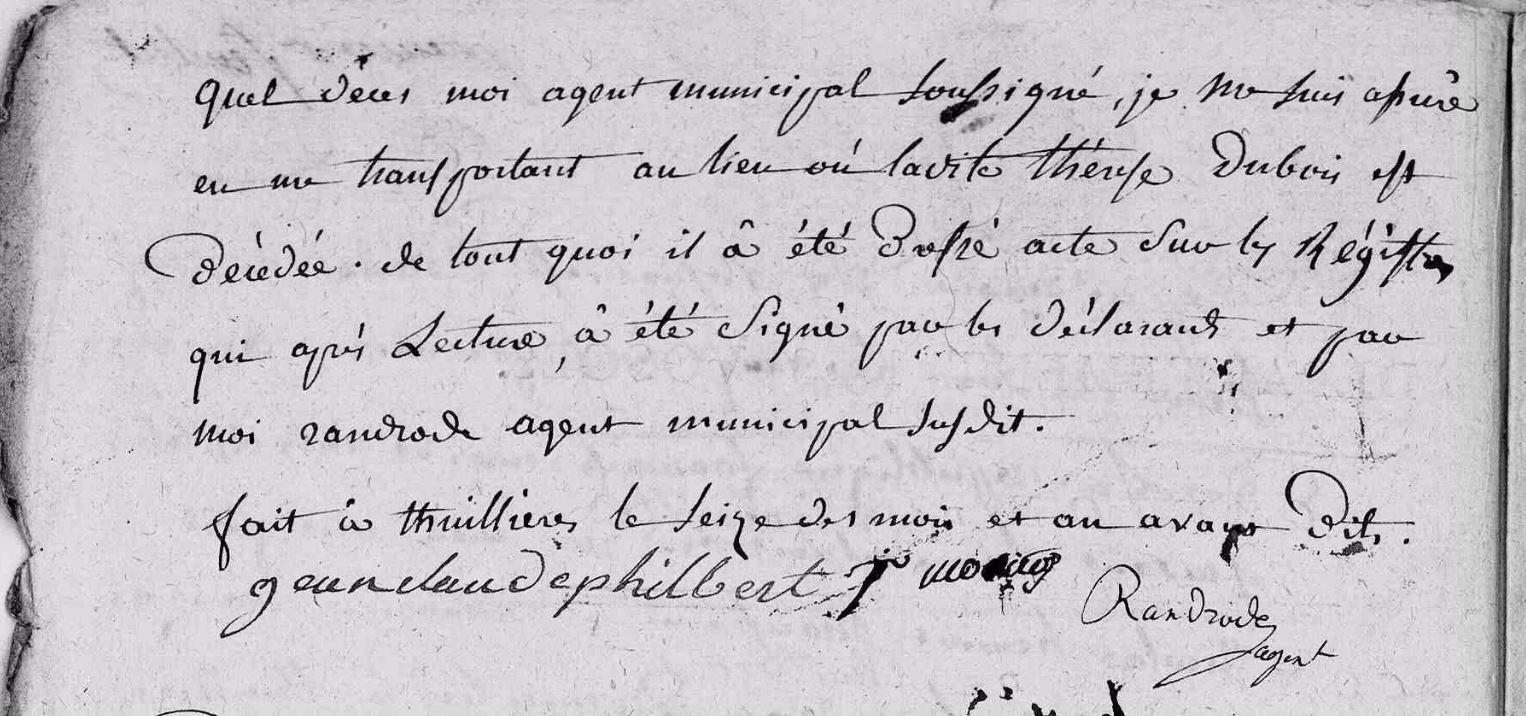 quel décès moi agent municipal soussigné, je me suis assuré
en me transportant au lieu où ladite thérese Dubois est
décédée. de tout quoi il â été dressé acte sur les Régistres
qui après Lecture, â été signé par les déclarants et par
moi randrode agent municipal susdit.
fait à thuillieres le seize des mois et an avant dits.
jeanclaudephilbert J
Randrode
agent